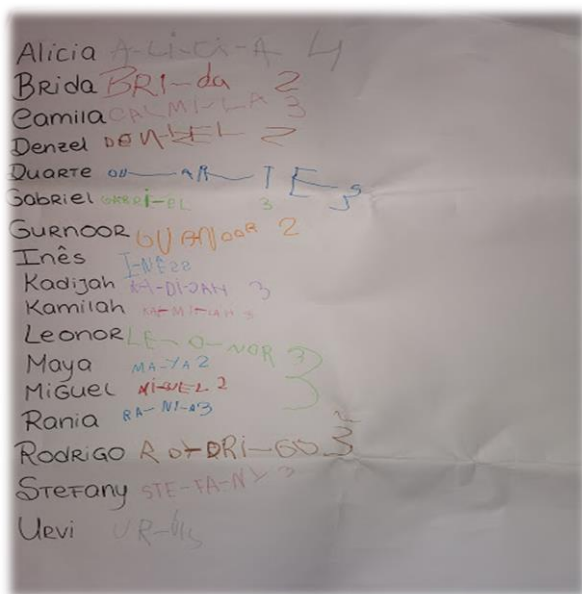 Alicia A-Li-Ci-A 4
BRida BRI-da 2
Camila CALMI-LA 3
Denzel DEN-ZEL 2
DUARTE DU-AR-TE 3
GABRIEL GABRI-EL 3
GURNOOR 2
Inês I-NÊS
Kadijah KA-DI-JAH 3
Kamilah KA-MI-LAH 3
LEONOR LE-O-NOR 3
Maya MA-YA 2
MiGuel 2
Rania RA-NI-A 3
RodRiGo RO-DRi-GO 3
STEFany STE-FA-NY 3
URVi